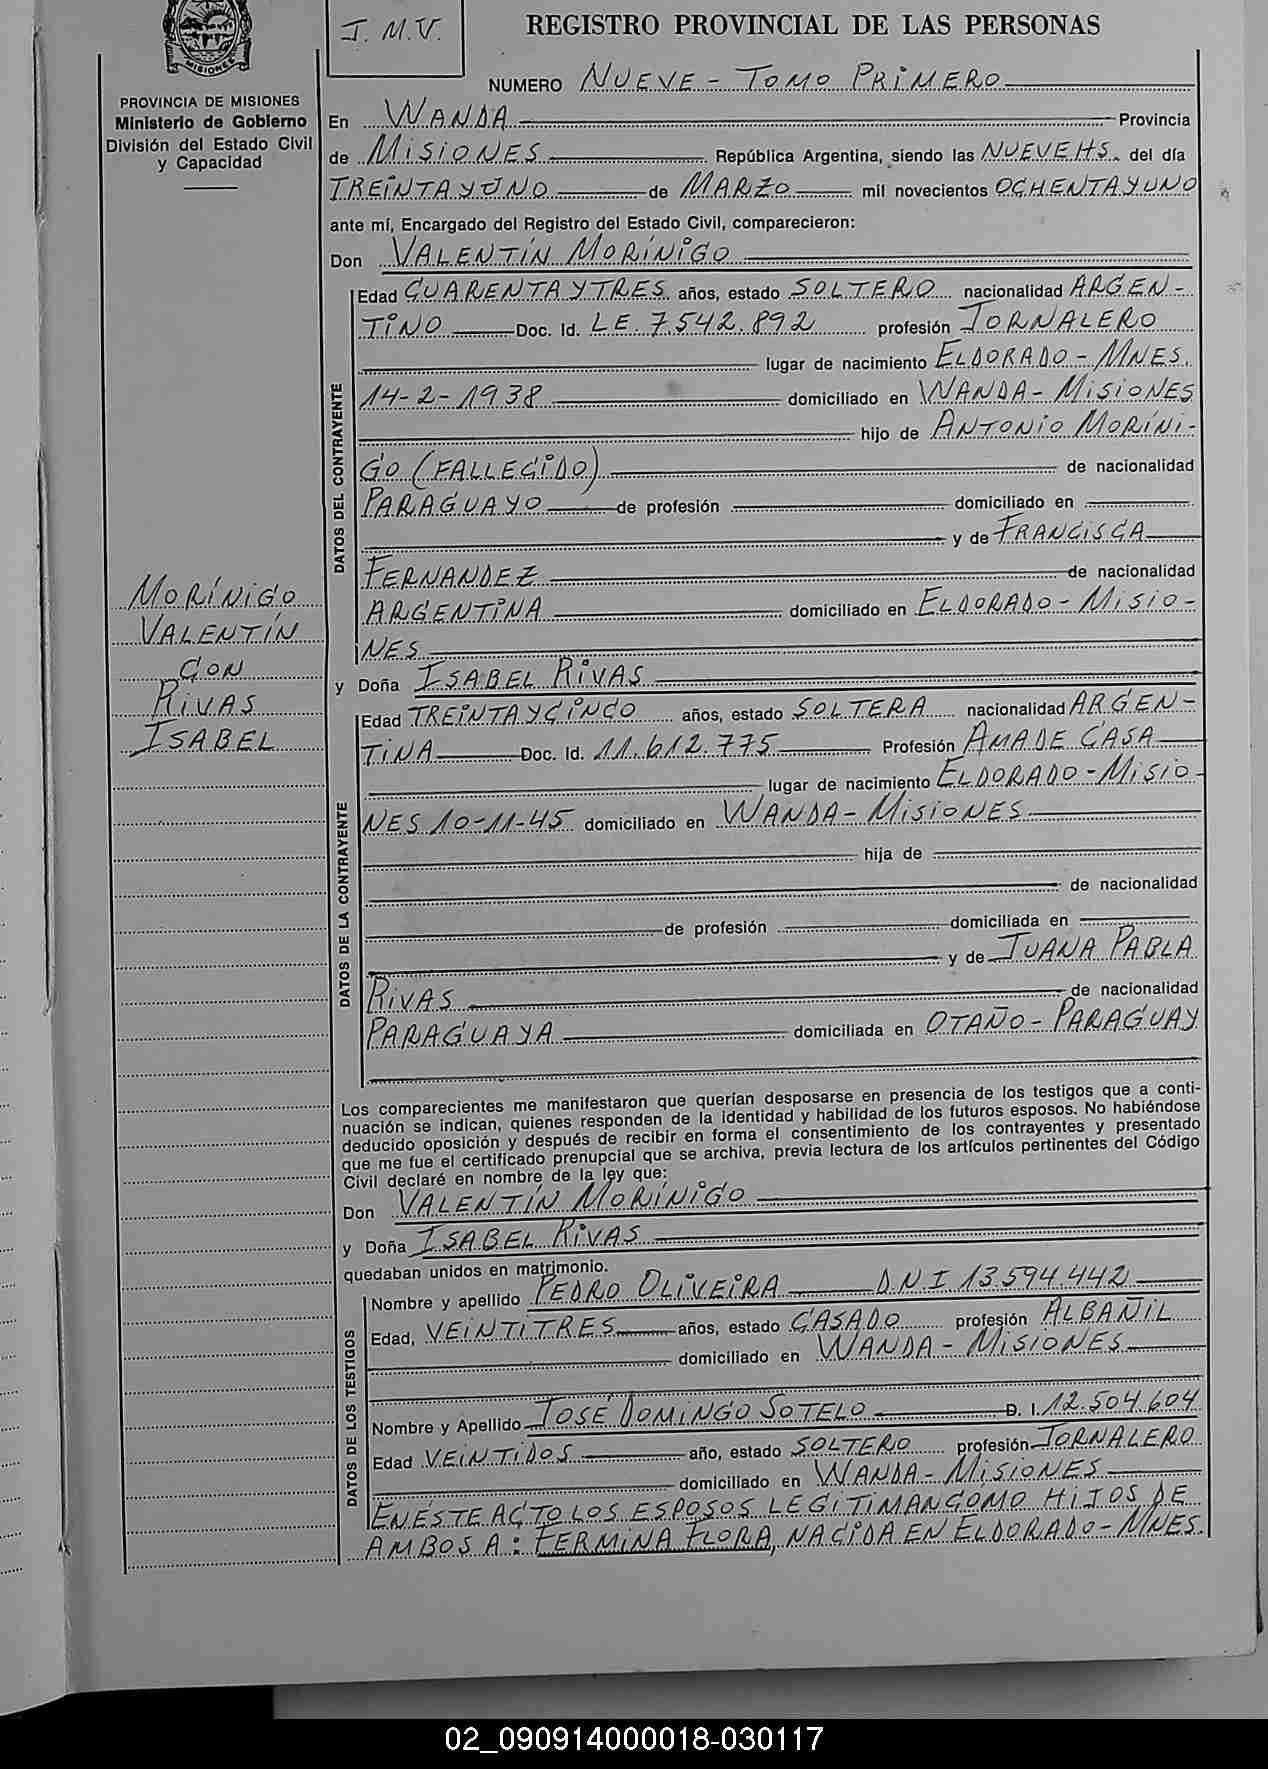 MISIONES
J. M. V.
REGISTRO PROVINCIAL DE LAS PERSONAS
NUMERO NUEVE - TOMO PRIMERO
PROVINCIA DE MISIONES
Ministerio de Gobierno
División del Estado Civil
y Capacidad
En WANDA Provincia
de MISIONES República Argentina, siendo las NUEVE HS. del día
TREINTA Y UNO de MARZO mil novecientos OCHENTA Y UNO
ante mí, Encargado del Registro del Estado Civil, comparecieron:
Don VALENTÍN MORÍNIGO
DATOS DEL CONTRAYENTE
Edad CUARENTA Y TRES años, estado SOLTERO nacionalidad ARGEN-
TINO Doc. Id. L.E. 7.542.892 profesión JORNALERO
lugar de nacimiento ELDORADO - MNES.
14-2-1938 domiciliado en WANDA - MISIONES
hijo de ANTONIO MORÍNI-
GO (FALLECIDO) de nacionalidad
PARAGUAYO de profesión domiciliado en
y de FRANCISCA
FERNANDEZ de nacionalidad
ARGENTINA domiciliado en ELDORADO - MISIO-
NES
MORÍNIGO
VALENTÍN
CON
RIVAS
ISABEL
y Doña ISABEL RIVAS
DATOS DE LA CONTRAYENTE
Edad TREINTA Y CINCO años, estado SOLTERA nacionalidad ARGEN-
TINA Doc. Id. 11.612.775 Profesión AMA DE CASA
lugar de nacimiento ELDORADO - MISIO-
NES 10-11-45 domiciliado en WANDA - MISIONES
hija de
de nacionalidad
de profesión domiciliada en
y de JUANA PABLA
RIVAS de nacionalidad
PARAGUAYA domiciliada en OTAÑO - PARAGUAY
Los comparecientes me manifestaron que querían desposarse en presencia de los testigos que a conti-
nuación se indican, quienes responden de la identidad y habilidad de los futuros esposos. No habiéndose
deducido oposición y después de recibir en forma el consentimiento de los contrayentes y presentado
que me fue el certificado prenupcial que se archiva, previa lectura de los artículos pertinentes del Código
Civil declaré en nombre de la ley que:
Don VALENTÍN MORÍNIGO
y Doña ISABEL RIVAS
quedaban unidos en matrimonio.
DATOS DE LOS TESTIGOS
Nombre y apellido PEDRO OLIVEIRA D.N.I 13.594.442
Edad, VEINTITRES años, estado CASADO profesión ALBAÑIL
domiciliado en WANDA - MISIONES
Nombre y Apellido JOSÉ DOMINGO SOTELO D. I. 12.504.604
Edad VEINTIDOS año, estado SOLTERO profesión JORNALERO
domiciliado en WANDA - MISIONES
EN ÉSTE ACTO LOS ESPOSOS LEGITIMAN CÓMO HIJOS DE
AMBOS A: FERMINA FLORA, NACIDA EN ELDORADO - MNES.
02_090914000018-030117